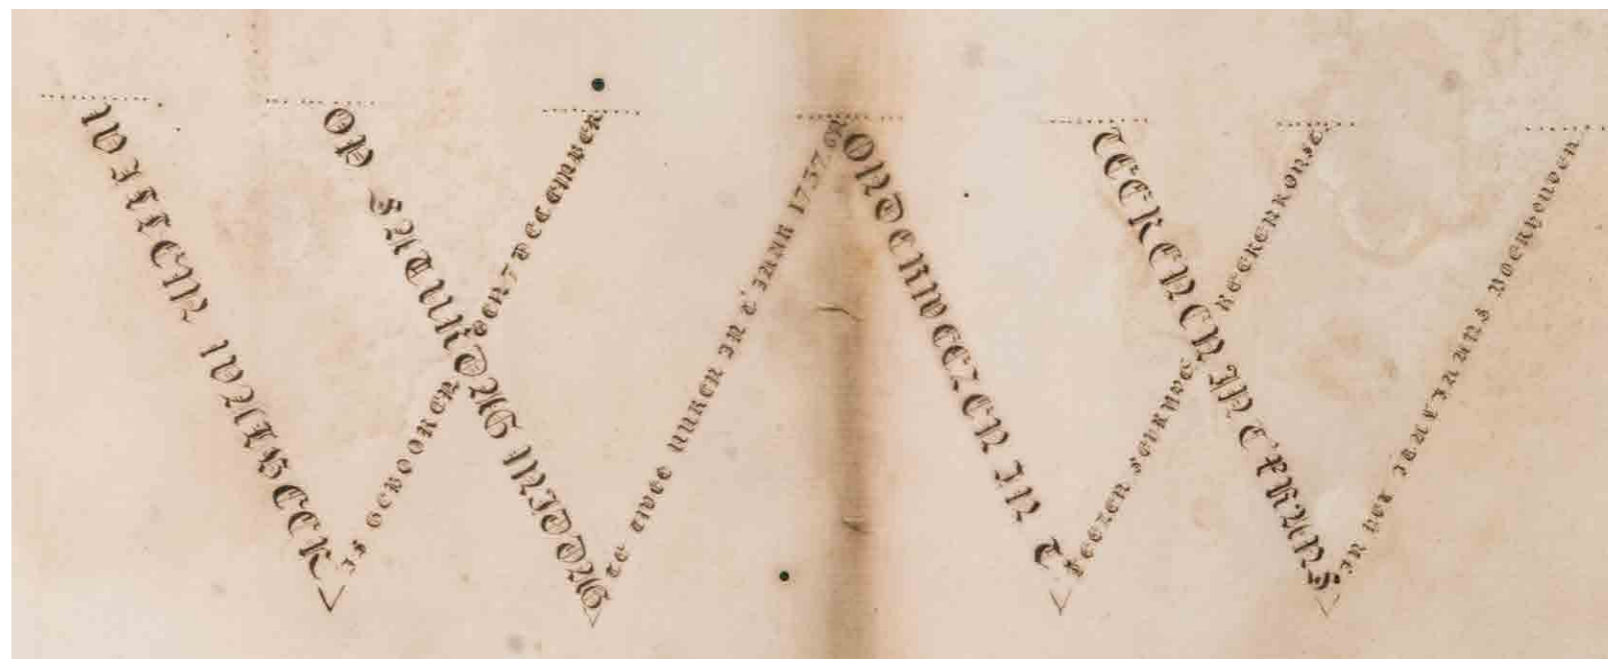 WILLEM WALBEEK
IS GEBOOREN DEN 7 DECEMBER
OP SATURDAG MIDDAG
TE TWEE UUREN IN T'JAAR 1737. EN
ONDERWEEZEN IN T
LEEZEN SCHRYVE REEKENKONST
TEEKENEN IN T'FRANS
EN HET ITALIAANS BOEKHOUDEN